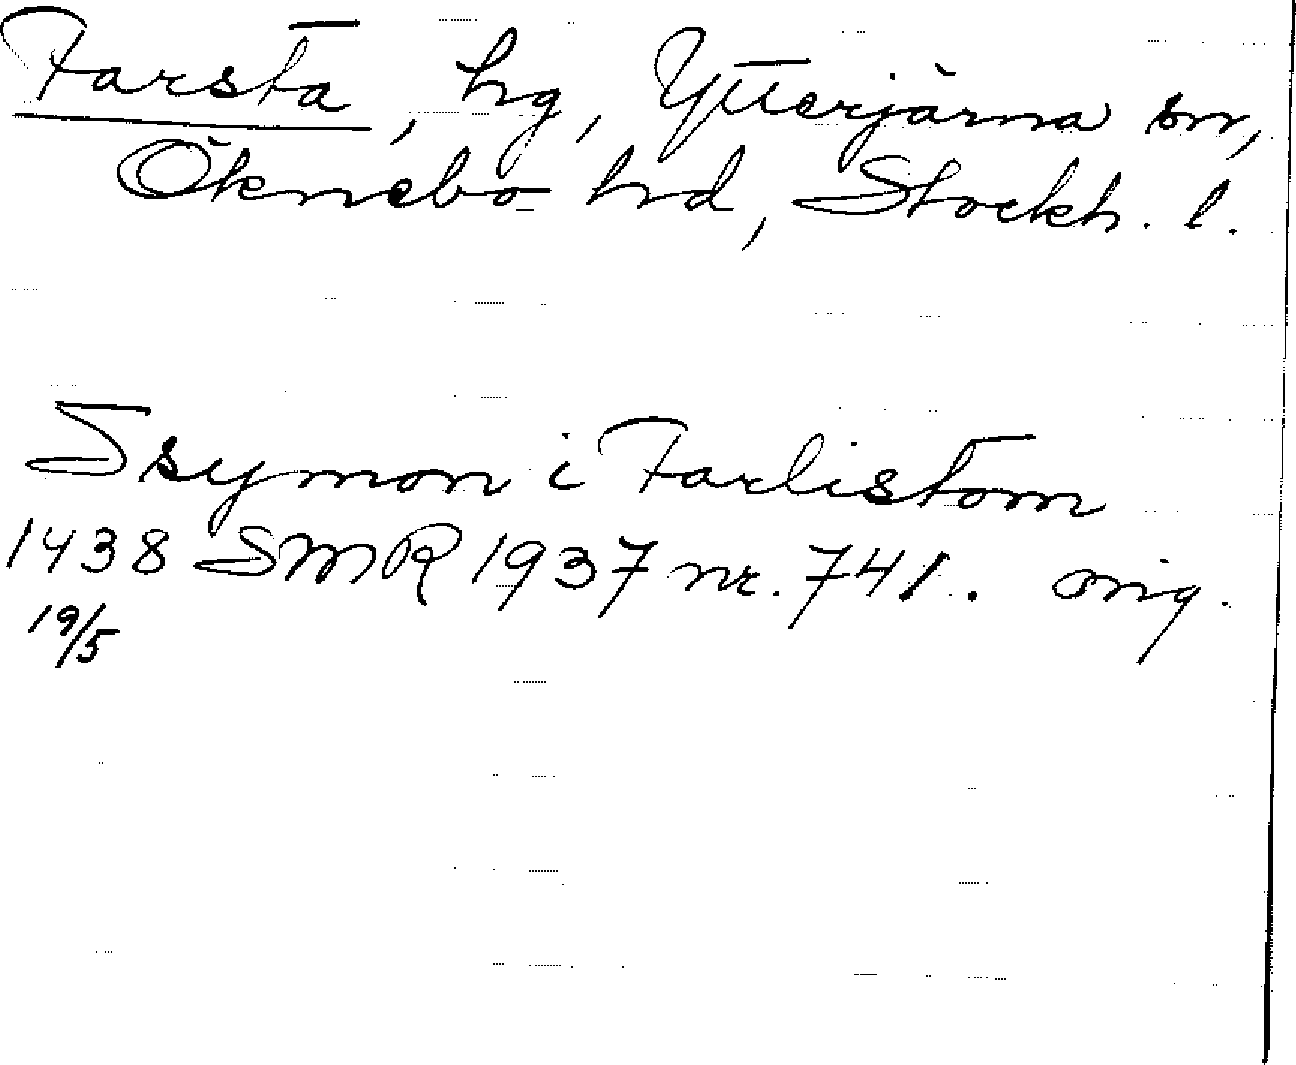 Farsta, hg, Ytterjärna sn,
Öknebo hd, Stockh. l.
Ssymon i Farlistom
1438 SMR 1937 nr. 741. orig.
19/5